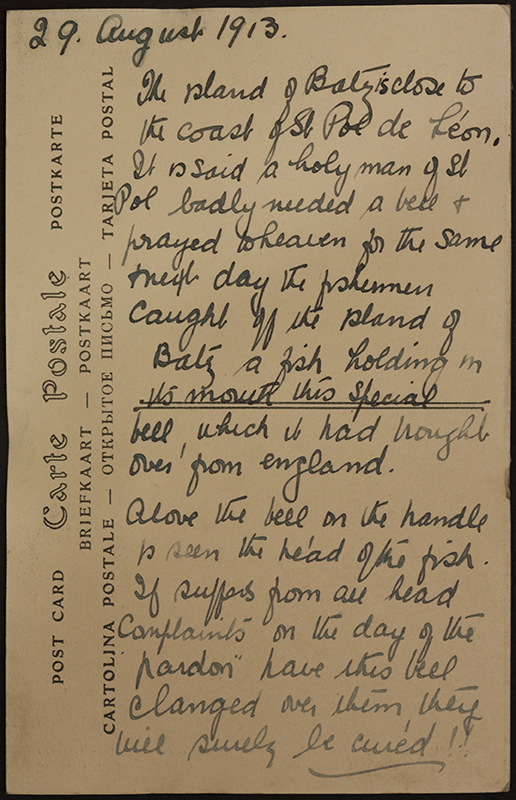 29. August 1913.
The island of Batz is close to
the coast of St Pol de Léon.
It is said a holy man of St
Pol badly needed a bell +
prayed to heaven for the same
+ next day the fishermen
Caught off the island of
Batz a fish holding in
its mouth this special
bell, which it had brought
over from england.
Above the bell on the handle
is seen the head of the fish.
If suffers from all head
Complaints on the day of the
"pardon" have this bell
clanged over them they
will surely be cured!!
POST CARD Carte Postale POSTKARTE
BRIEFKAART — POSTKAART
CARTOLINA POSTALE — ОТКРЫТОЕ ПИСЬМО — TARJETA POSTAL